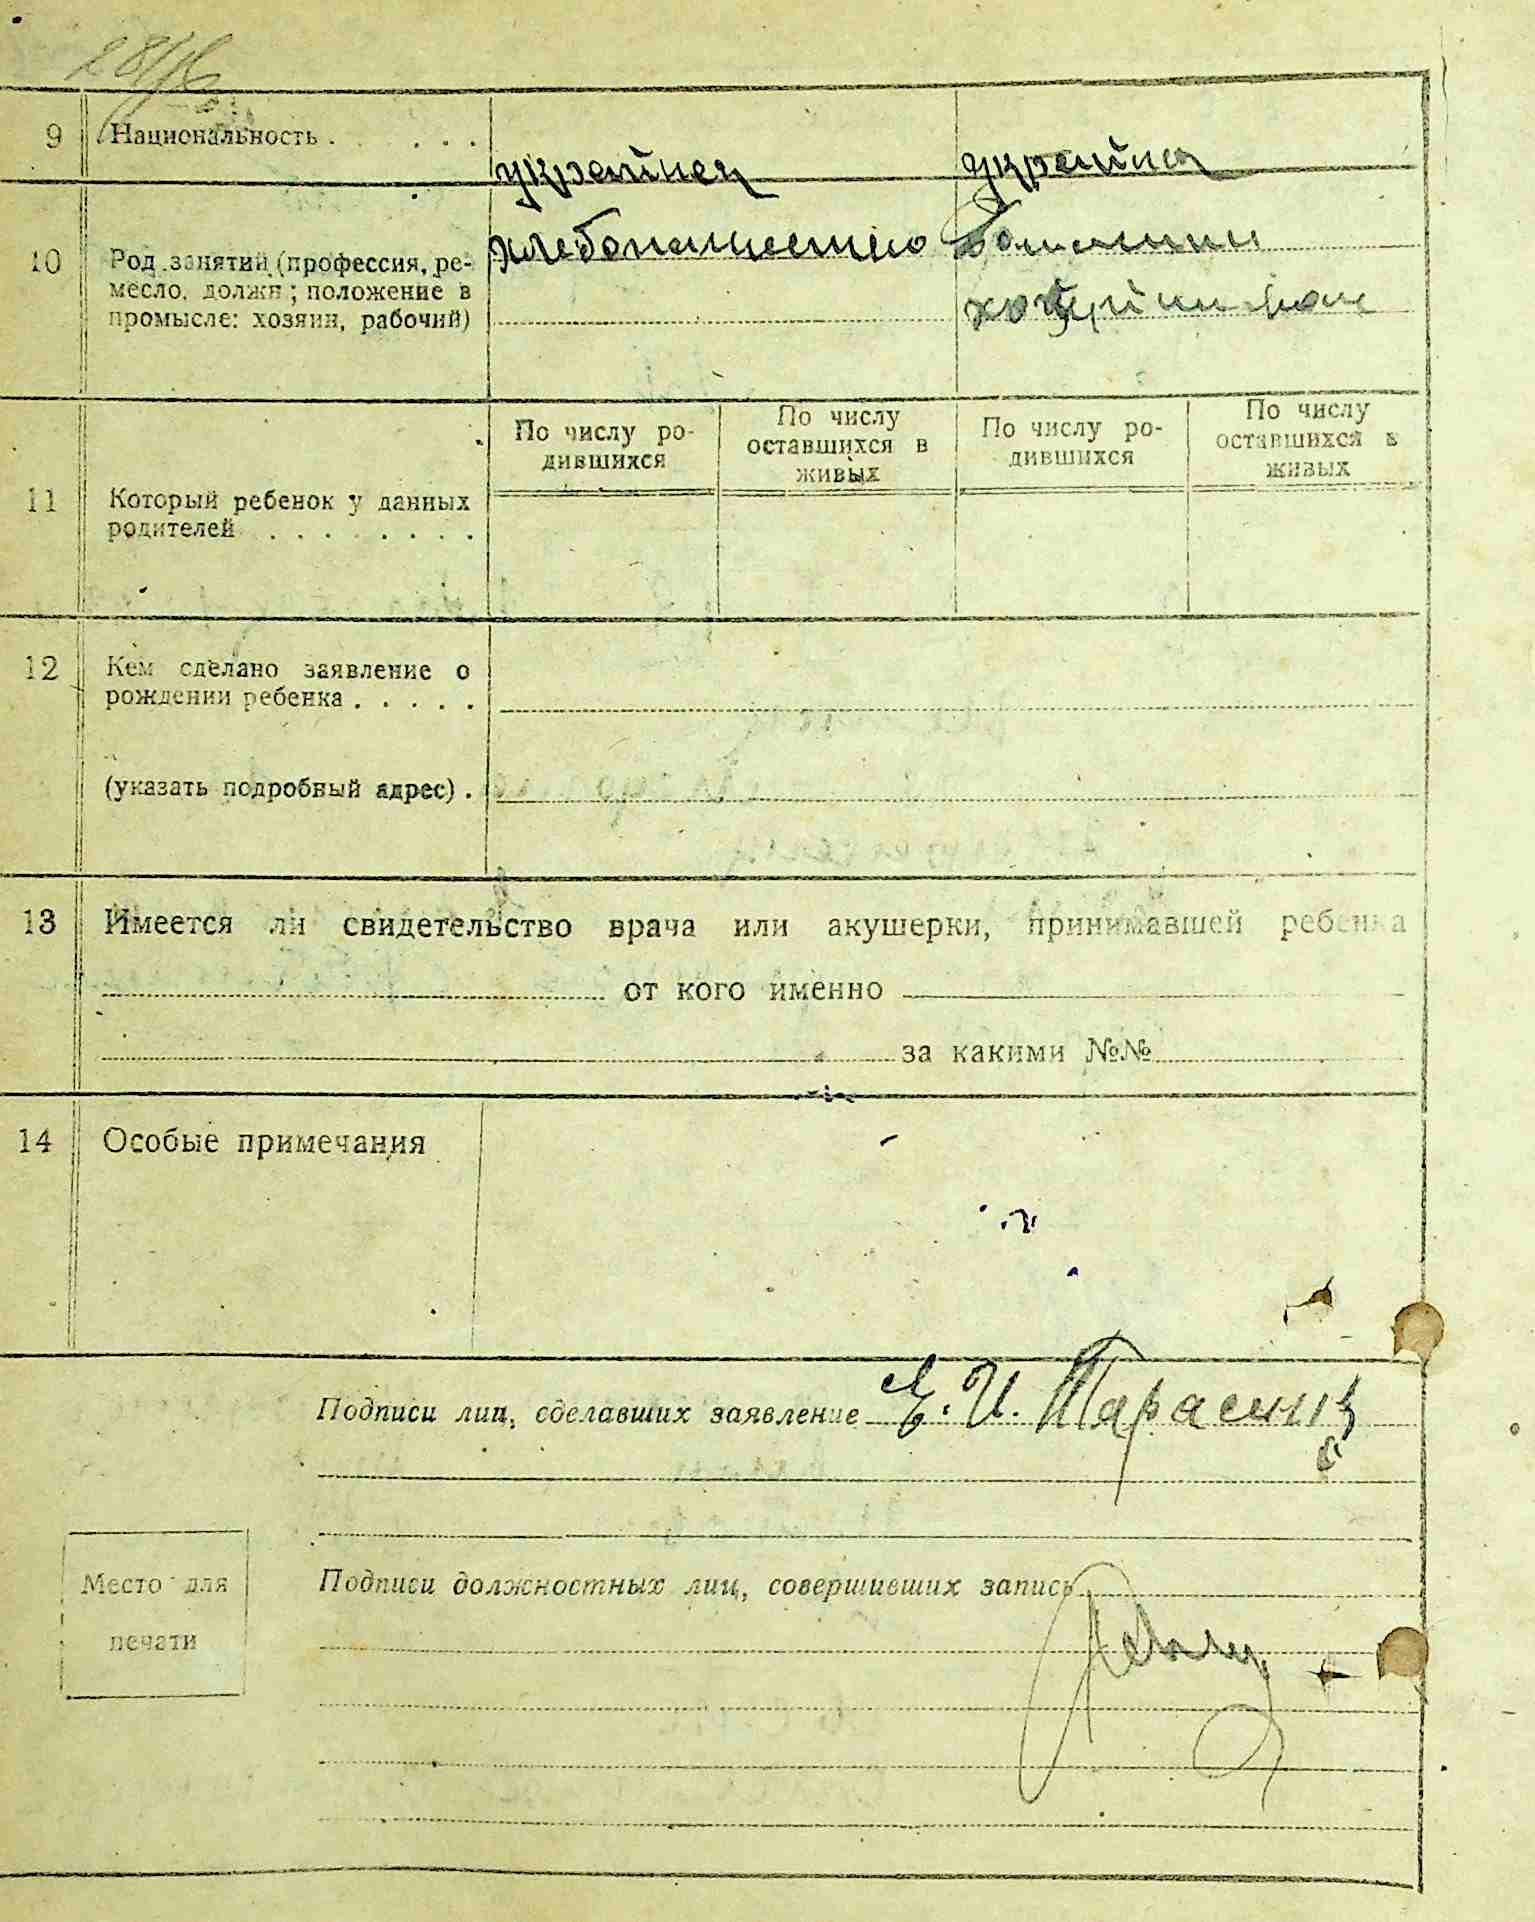 9 Национальность . . . . . .
украинец украинка
10 Род занятий (профессия, ре-
месло, должн; положение в
промысле: хозяин, рабочий)
хлебопашество
По числу ро-
дившихся
По числу
оставшихся в
живых
По числу ро-
дившихся
По числу
оставшихся в
живых
11 Который ребенок у данных
родителей . . . . . . . .
12 Кем сделано заявление о
рождении ребенка . . . . .
(указать подробный адрес) .
13 Имеется ли свидетельство врача или акушерки, принимавшей ребенка
от кого именно
за какими №№
14 Особые примечания
Подписи лиц, сделавших заявление Е. И. Тарасенко
Место для
печати
Подписи должностных лиц, совершивших запись